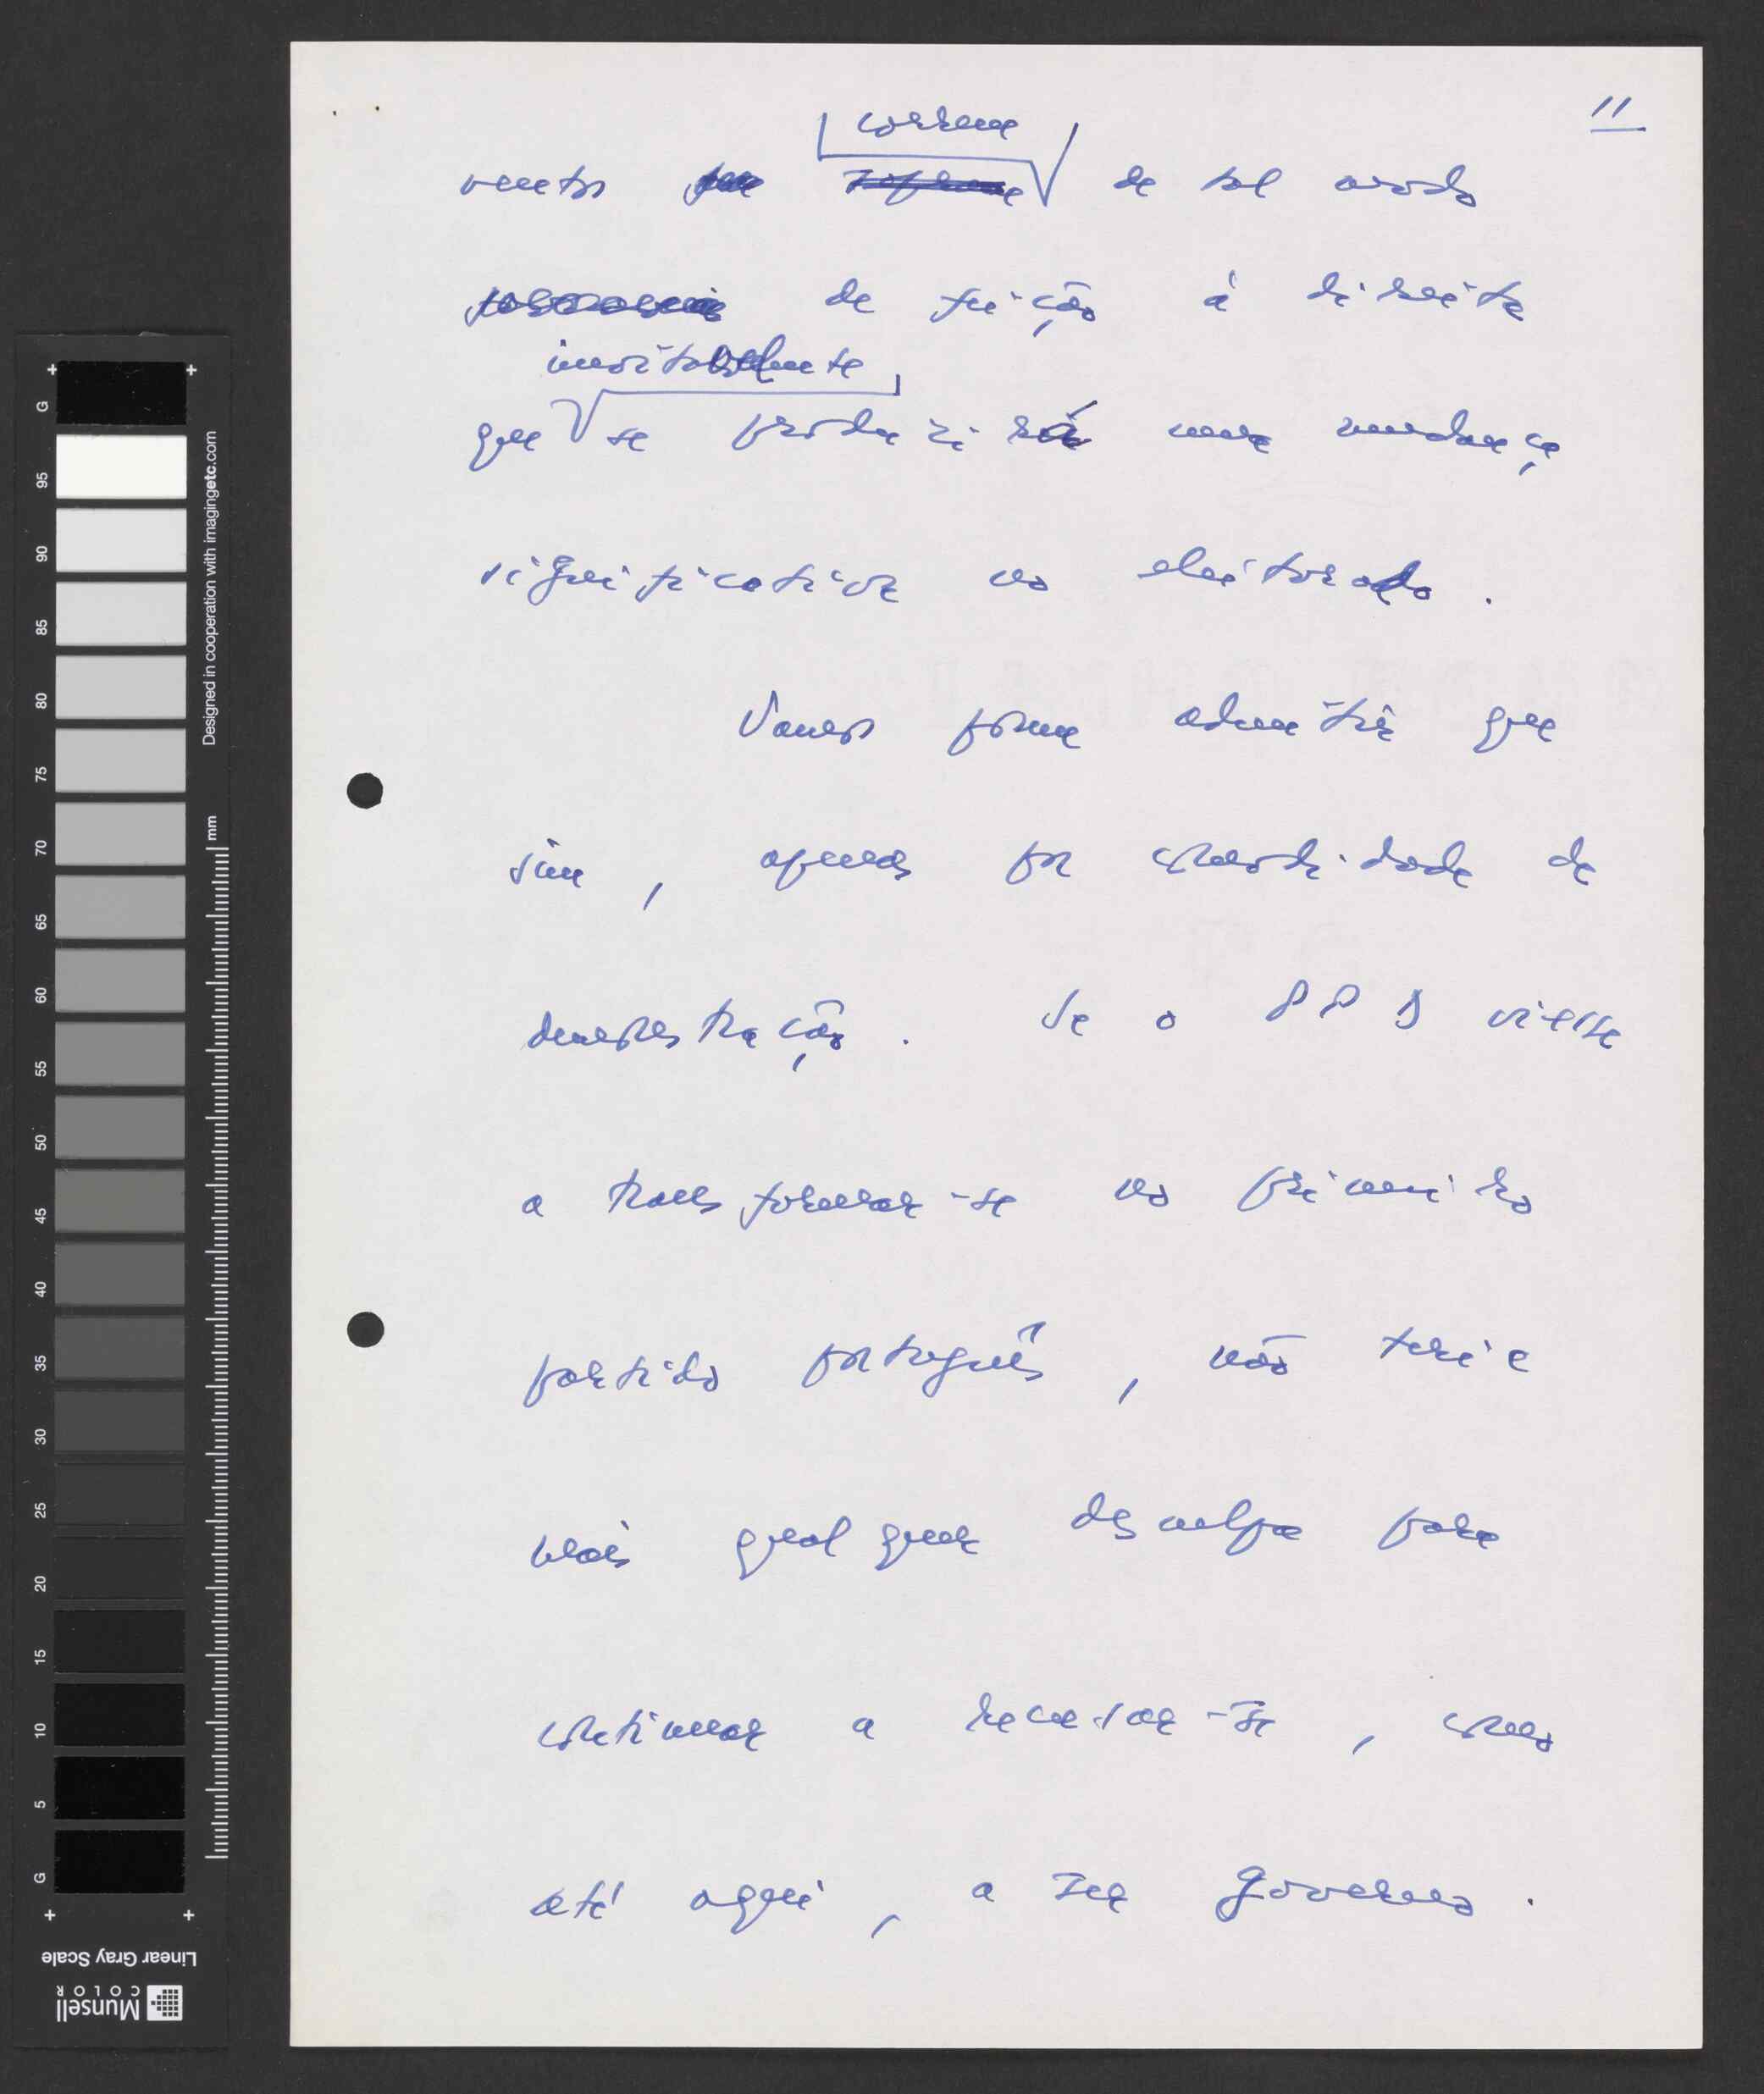 11
correm
ventos de tal modo
de feição à direita
inevitavelmente
que se produzirá uma mudança
significativa no eleitorado.
Vamos porém admitir que
sim, apenas por comodidade de
demonstração. Se o PPD viesse
a transformar-se no primeiro
partido português, não teria
mais qualquer desculpa para
continuar a recusar-se, como
até aqui, a ser Governo.
G 95 90 85 80 75 70 65 60 55 50 45 40 35 30 25 20 15 10 5 G
Designed in cooperation with imagingetc.com
mm
Linear Gray Scale
Munsell
COLOR